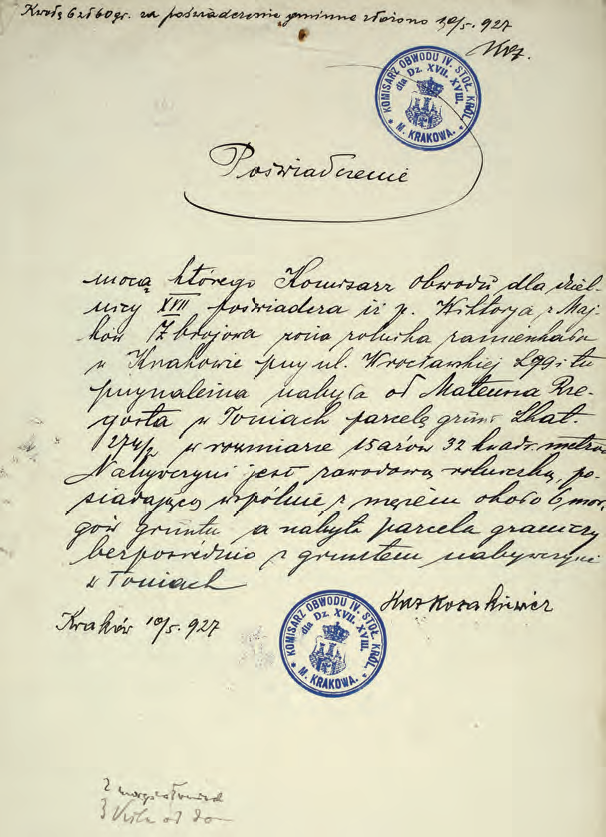 Kwotę 6 zł 60 gr. za poświadczenie gminne złożono 10/5. 927
KOMISARZ OBWODU IV. STOŁ. KRÓL.
dla Dz. XVII. XVIII.
* M. KRAKOWA. *
Poświadczenie
mocą którego Komisarz obwodu dla dziel-
nicy XVII poświadcza iż p. Wiktorya z Maj-
ków Zbrojowa żona rolnika zamieszkała
w Krakowie przy ul. Wrocławskiej L 99 i tu
przynależna nabyła od Mateusza Rze-
gosta w Toniach parcelę grunt Lkat.
274/2 w rozmiarze 15 arów 32 kwadr. metrów
Nabywczyni jest zawodową rolniczką, po-
siadającą wspólnie z mężem około 6 mor-
gów gruntu a nabyta parcela graniczy
bezpośrednio z gruntem nabywczyni
w Toniach
Kraków 10/5. 927
KOMISARZ OBWODU IV. STOŁ. KRÓL.
dla Dz. XVII. XVIII.
* M. KRAKOWA. *
2
3 od